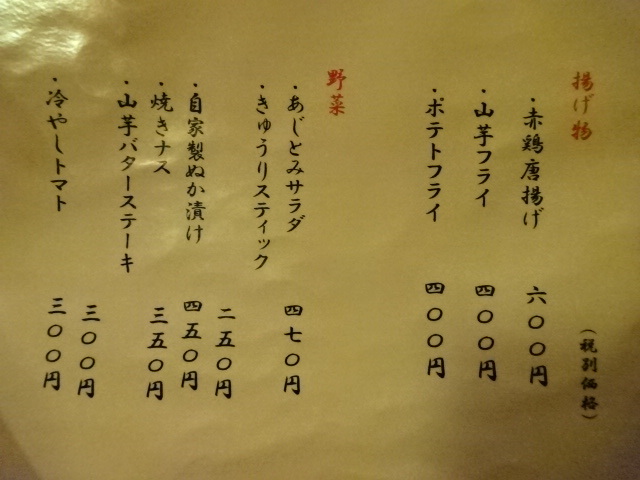 揚げ物
（税別価格）
・赤鶏唐揚げ 六〇〇円
・山芋フライ 四〇〇円
・ポテトフライ 四〇〇円
野菜
・あじとみサラダ 四七〇円
・きゅうりスティック 二五〇円
・自家製ぬか漬け 四五〇円
・焼きナス 三五〇円
・山芋バターステーキ 三〇〇円
・冷やしトマト 三〇〇円